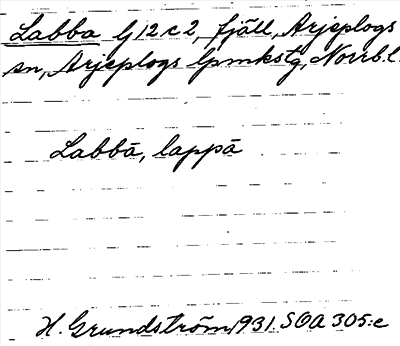 Labba G12c2, fjäll, Arjeplogs
sn, Arjeplogs lpmkstg, Norrb.l.
Labbā, lappā
H. Grundström 1931. SOA 305:c